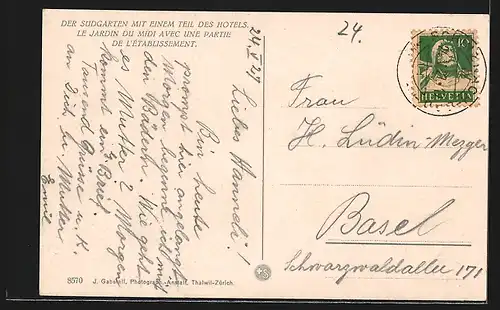 DER SÜDGARTEN MIT EINEM TEIL DES HOTELS.
LE JARDIN DU MIDI AVEC UNE PARTIE
DE L'ÉTABLISSEMENT.
24.
24.V.24
Liebes Hanneli!
Bin heute
prompt hier angelangt
Morgen beginne ich mit
den Bädern. Wie geht
es Mutter? Morgen
kommt ein Brief.
Tausend Grüsse u. K.
an Dich u. Mutter
Emil
10
HELVETIA
Frau
H. Lüdin-Mezger
Basel
Schwarzwaldallee 171
8570 J. Gaberell, Photograph-Anstalt, Thalwil-Zürich.